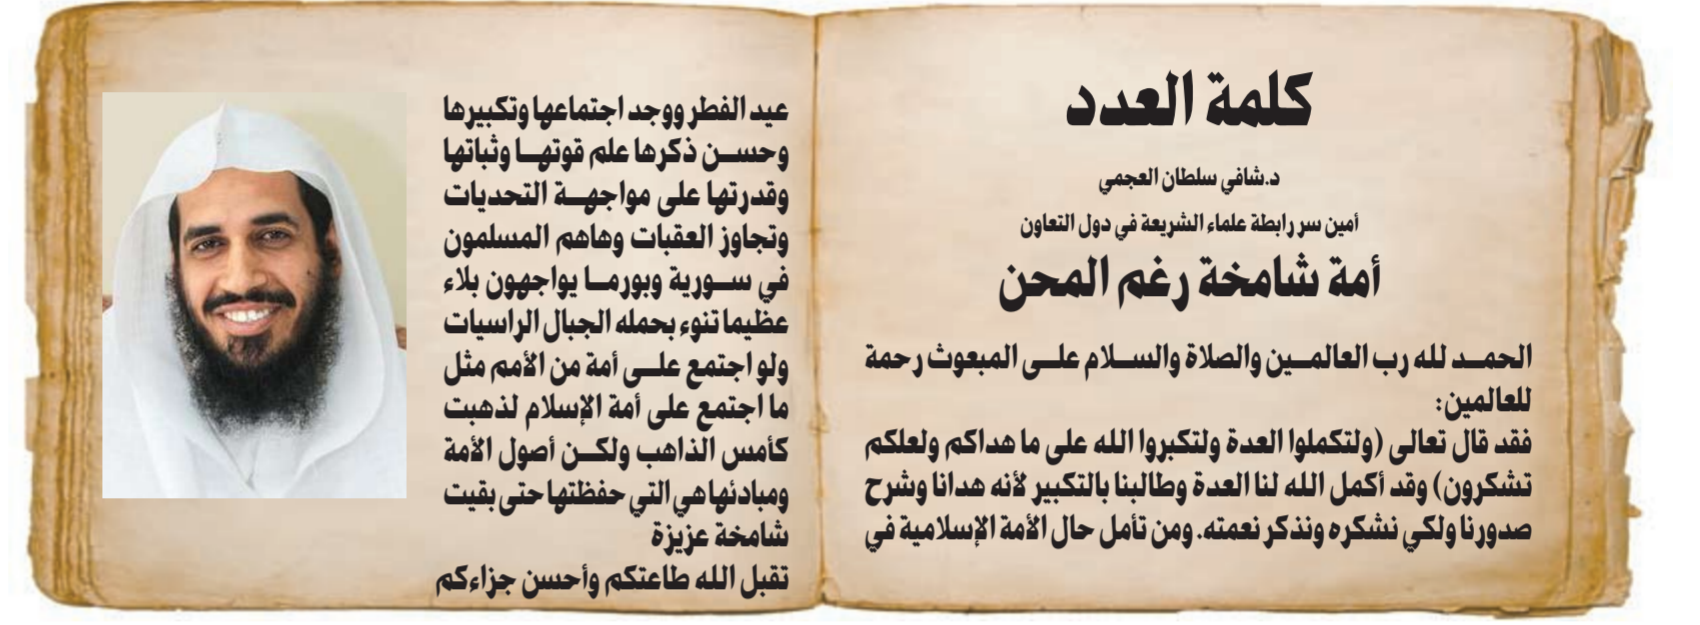 كلمة العدد
د.شافي سلطان العجمي
أمين سر رابطة علماء الشريعة في دول التعاون
أمة شامخة رغم المحن
الحمد لله رب العالمين والصلاة والسلام على المبعوث رحمة
للعالمين:
فقد قال تعالى (ولتكملوا العدة ولتكبروا الله على ما هداكم ولعلكم
تشكرون) وقد أكمل الله لنا العدة وطالبنا بالتكبير لأنه هدانا وشرح
صدورنا ولكي نشكره ونذكر نعمته. ومن تأمل حال الأمة الإسلامية في
عيد الفطر ووجد اجتماعها وتكبيرها
وحسن ذكرها علم قوتها وثباتها
وقدرتها على مواجهة التحديات
وتجاوز العقبات وهاهم المسلمون
في سورية وبورما يواجهون بلاء
عظيما تنوء بحمله الجبال الراسيات
ولو اجتمع على أمة من الأمم مثل
ما اجتمع على أمة الإسلام لذهبت
كأمس الذاهب ولكن أصول الأمة
ومبادئها هي التي حفظتها حتى بقيت
شامخة عزيزة
تقبل الله طاعتكم وأحسن جزاءكم